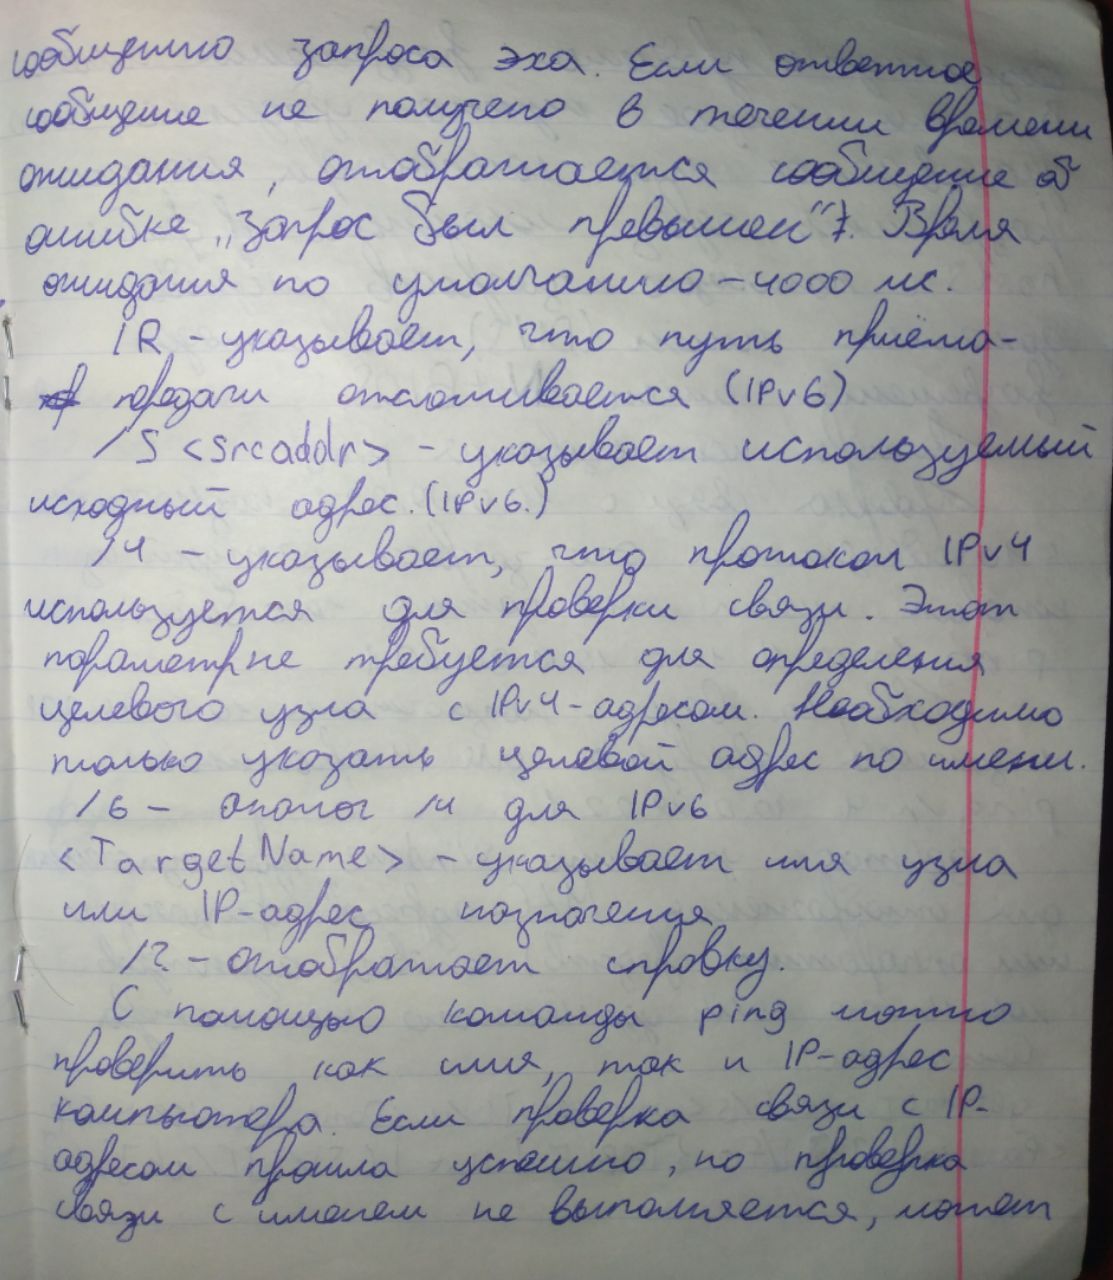 сообщению запроса эха. Если ответное
сообщение не получено в течении времени
ожидания, отображается сообщение об
ошибке „Запрос был превышен“7. Время
ожидания по умолчанию – 4000 мс.
/R – указывает, что путь приёма-
передачи отслеживается (IPv6)
/S <srcaddr> – указывает используемый
исходный адрес. (IPv6.)
/4 – указывает, что протокол IPv4
используется для проверки связи. Этот
параметр не требуется для определения
целевого узла с IPv4-адресом. Необходимо
только указать целевой адрес по имени.
/6 – аналог /4 для IPv6
<TargetName> – указывает имя узла
или IP-адрес назначения
/? – отображает справку.
С помощью команды ping можно
проверить как имя, так и IP-адрес
компьютера. Если проверка связи с IP-
адресом прошла успешно, но проверка
связи с именем не выполняется, может